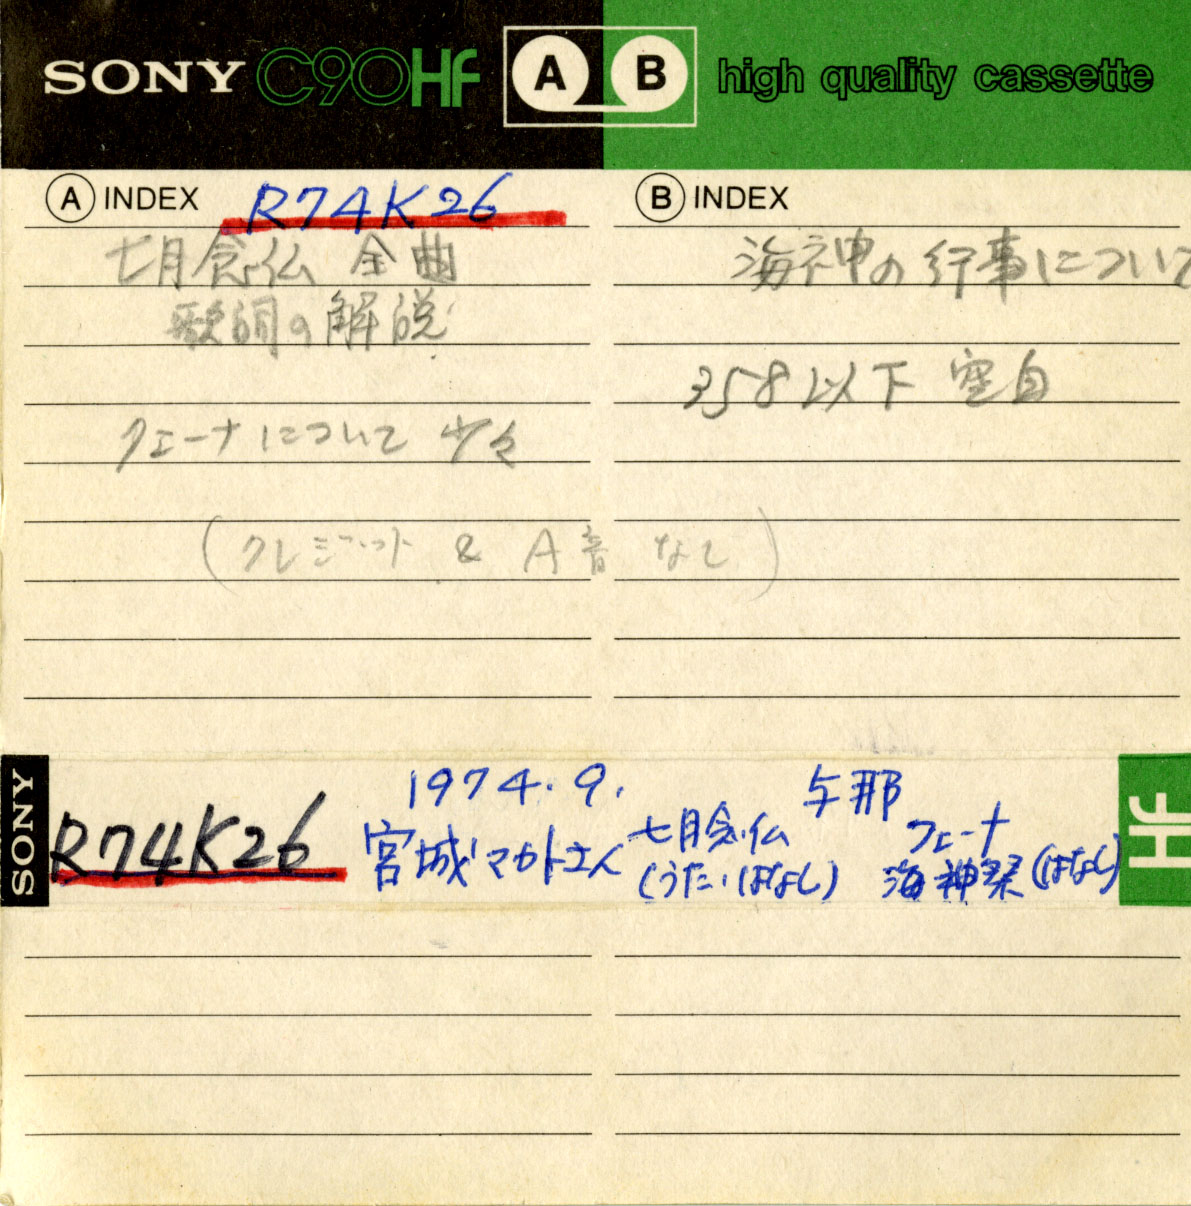 SONY C90HF A B high quality cassette
A INDEX R74K26
七月念仏 全曲
歌詞の解説
クェーナについて 少々
(クレジット & A音 なし)
B INDEX
海神の行事について
358以下 空白
SONY
R74K26
1974.9. 与那
宮城マカトさん 七月念仏 クェーナ
(うた,はなし) 海神祭(はなし)
HF